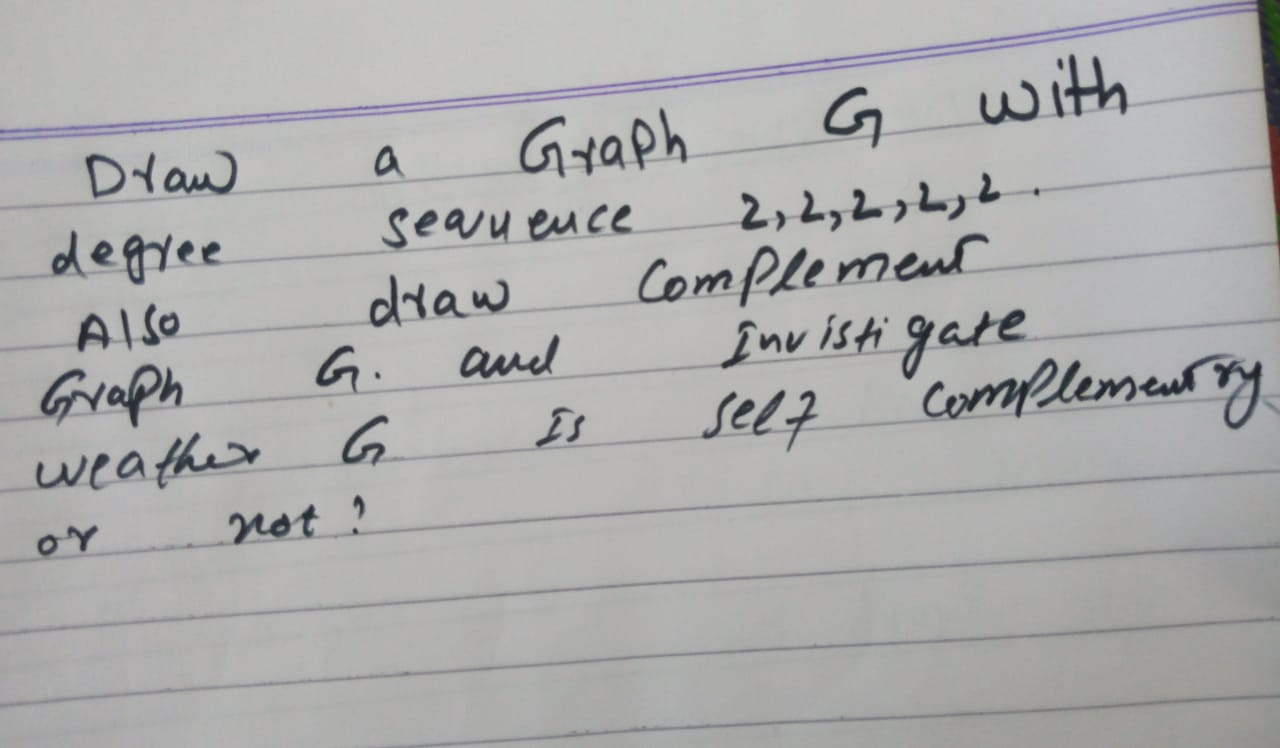 Draw a Graph G with
degree sequence 2,2,2,2,2.
Also draw Complement
Graph G. and Invistigate
weather G Is self complementry
or not?